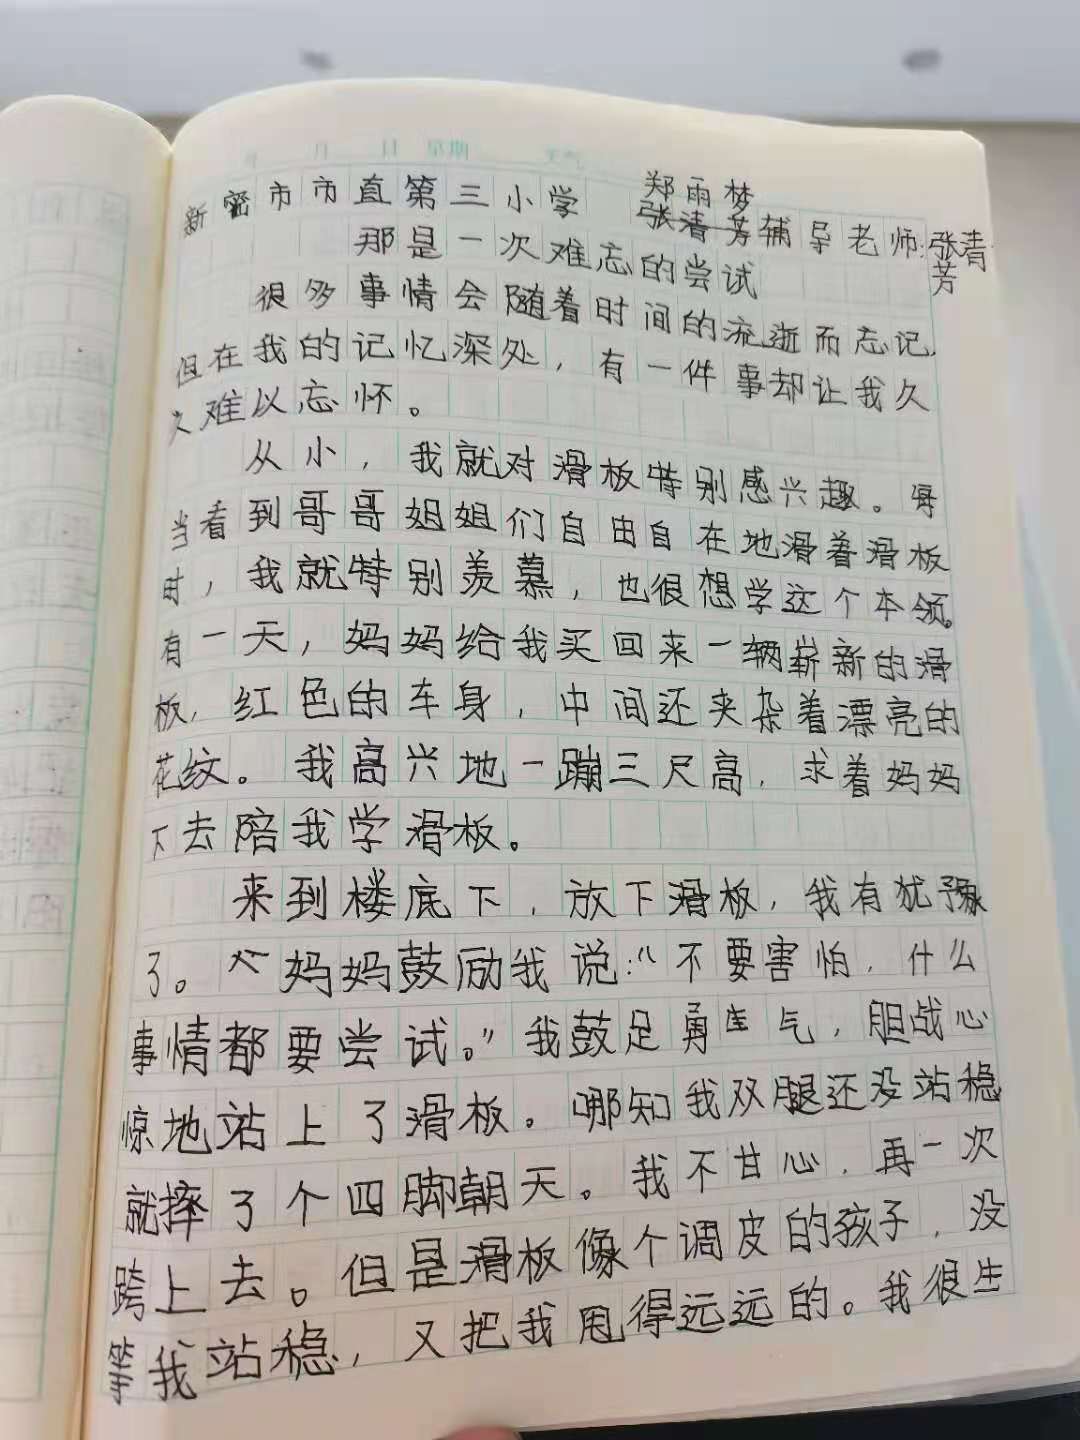 月 日 星期 天气
新密市市直第三小学 郑雨梦
张清芳辅导老师:张清芳
那是一次难忘的尝试
很多事情会随着时间的流逝而忘记,
但在我的记忆深处,有一件事却让我久
久难以忘怀。
从小,我就对滑板特别感兴趣。每
当看到哥哥姐姐们自由自在地滑着滑板
时,我就特别羡慕,也很想学这个本领。
有一天,妈妈给我买回来一辆崭新的滑
板,红色的车身,中间还夹杂着漂亮的
花纹。我高兴地一蹦三尺高,求着妈妈
下去陪我学滑板。
来到楼底下,放下滑板,我有犹豫
了。妈妈鼓励我说:“不要害怕,什么
事情都要尝试。”我鼓足勇气,胆战心
惊地站上了滑板。哪知我双腿还没站稳
就摔了个四脚朝天。我不甘心,再一次
跨上去。但是滑板像个调皮的孩子,没
等我站稳,又把我甩得远远的。我很生